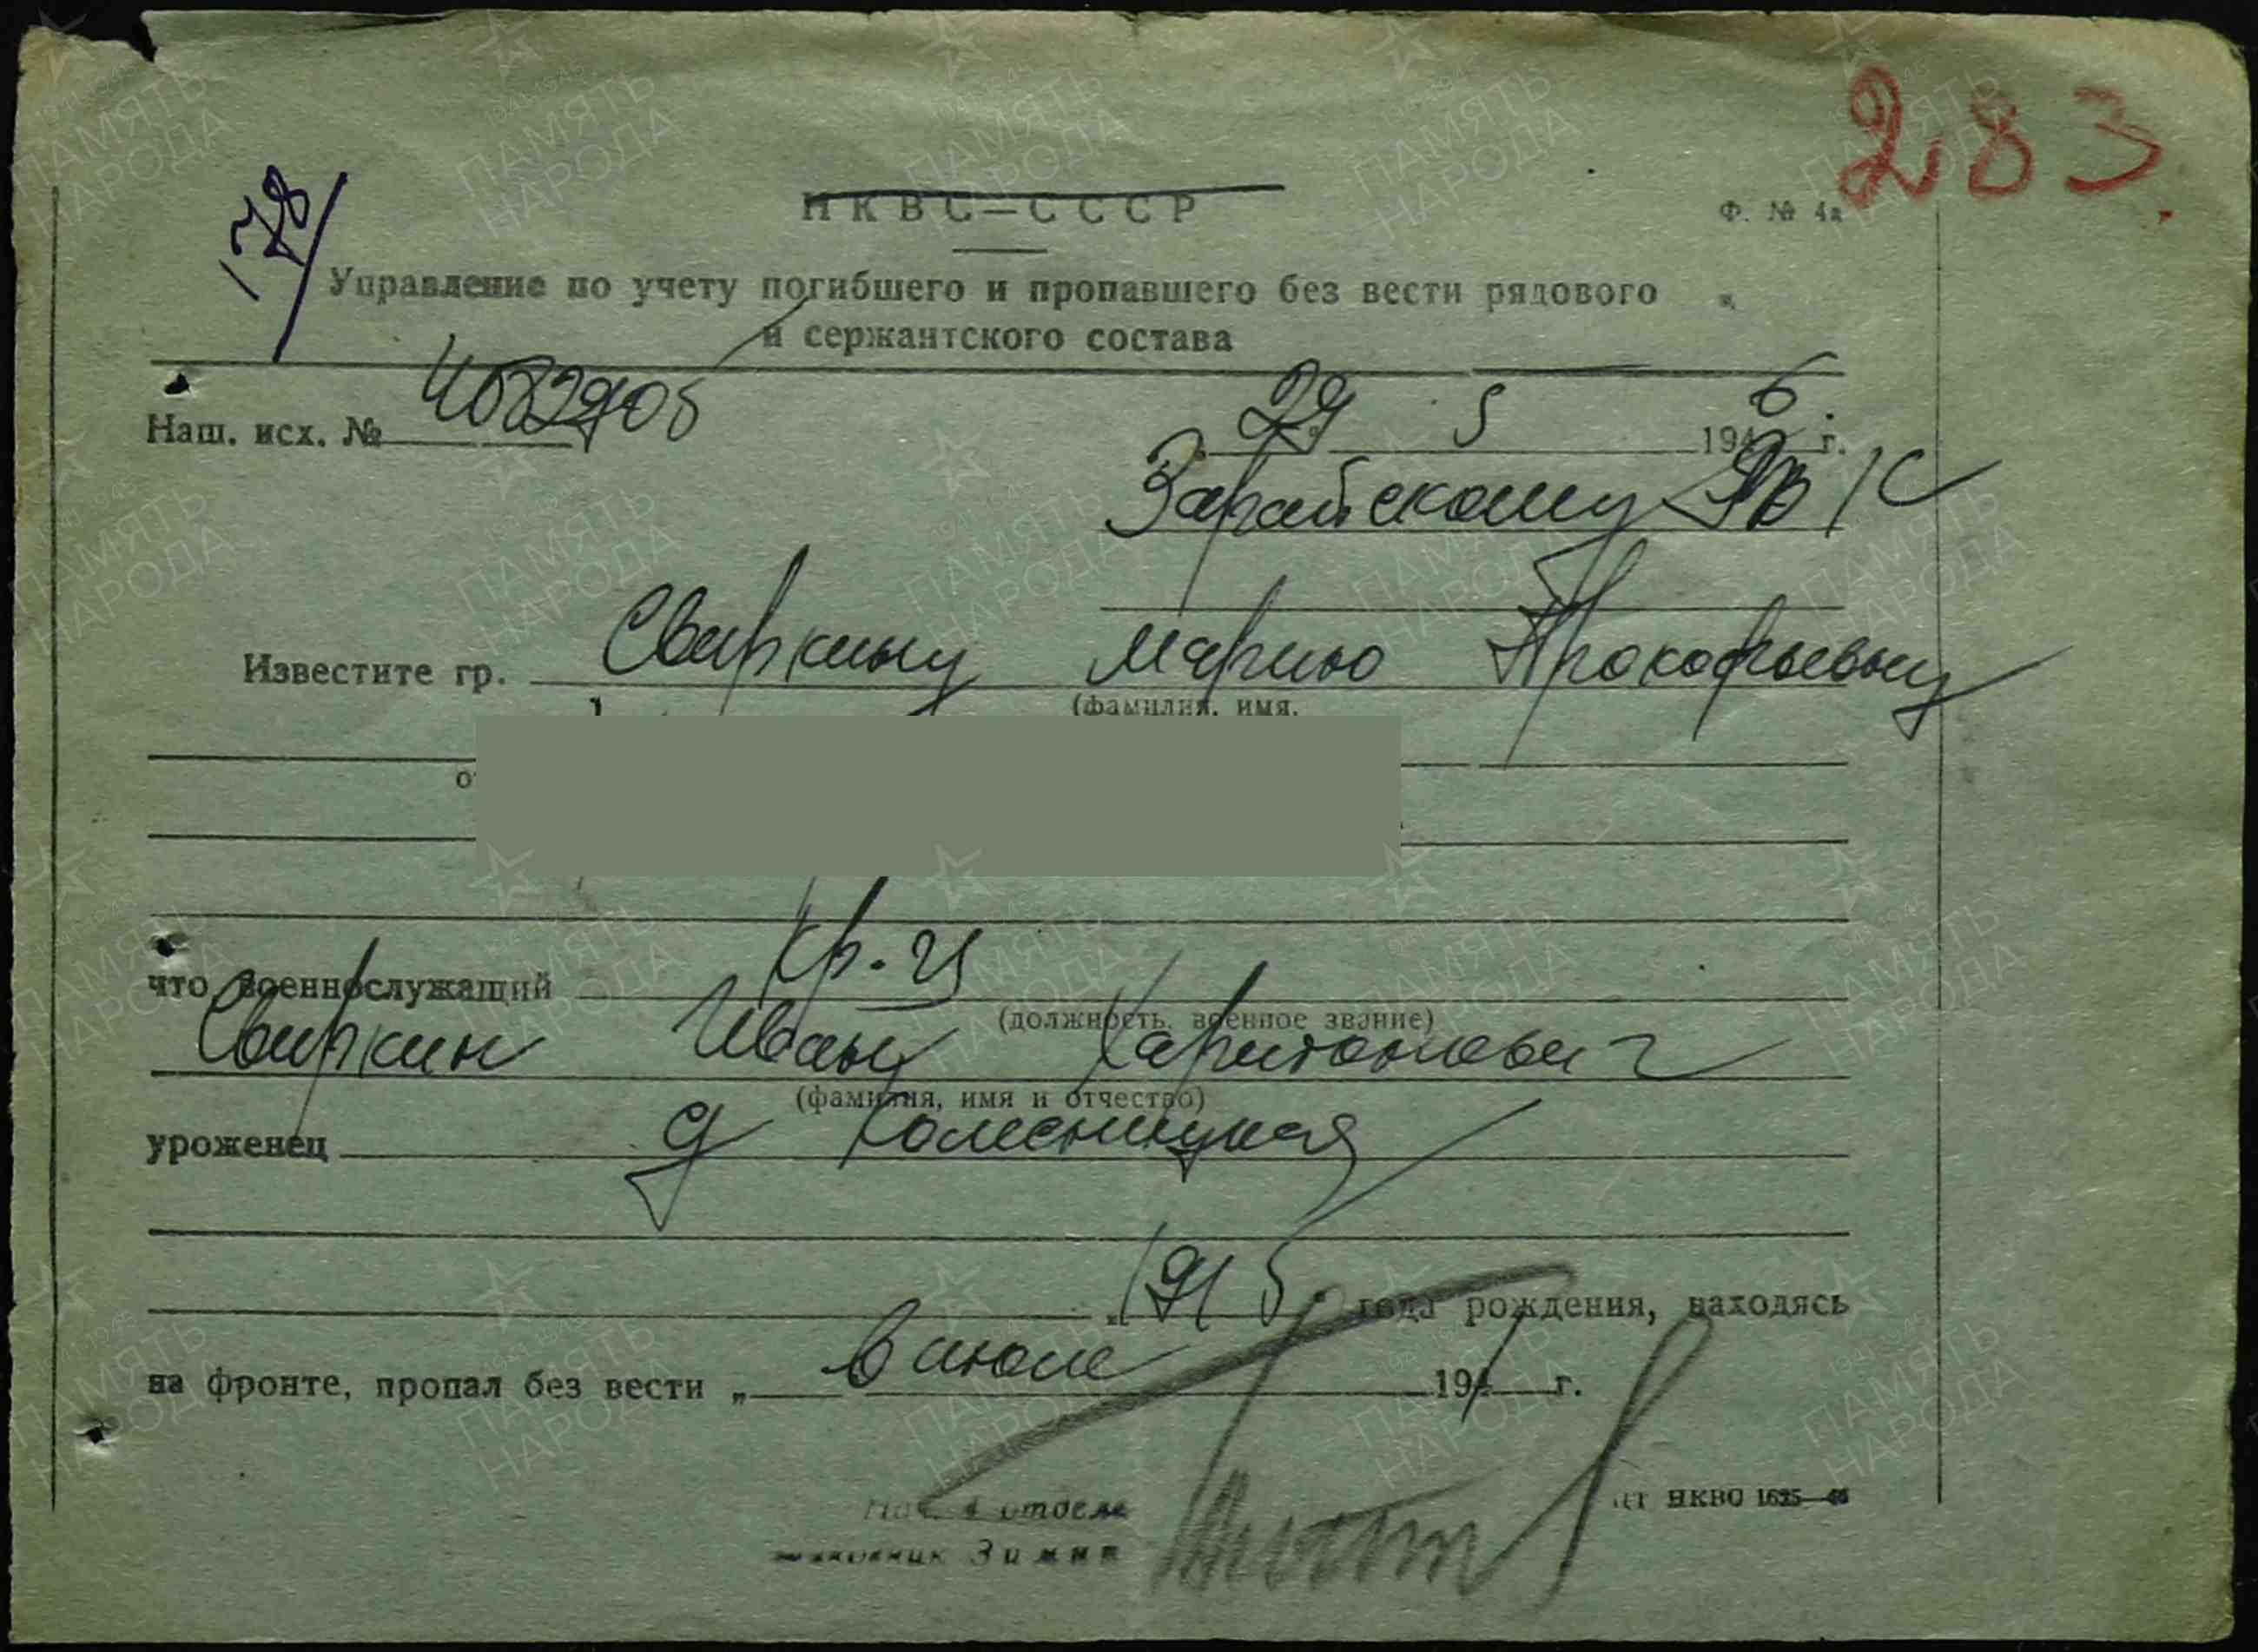 283.
178/
НКВС—СССР
Ф. № 4а
Управление по учету погибшего и пропавшего без вести рядового
и сержантского состава
Наш. исх. №
29 5 1946 г.
Зарайскому РВК
Известите гр. Свиркину Марию Прокофьевну
(фамилия, имя,
что военнослужащий кр-ц
(должность, военное звание)
Свиркин Иван Харитонович
(фамилия, имя и отчество)
уроженец д
1915 года рождения, находясь
на фронте, пропал без вести „ в июле 1941 г.
отдела
Зимин
НКВО 1625—46
ПАМЯТЬ НАРОДА